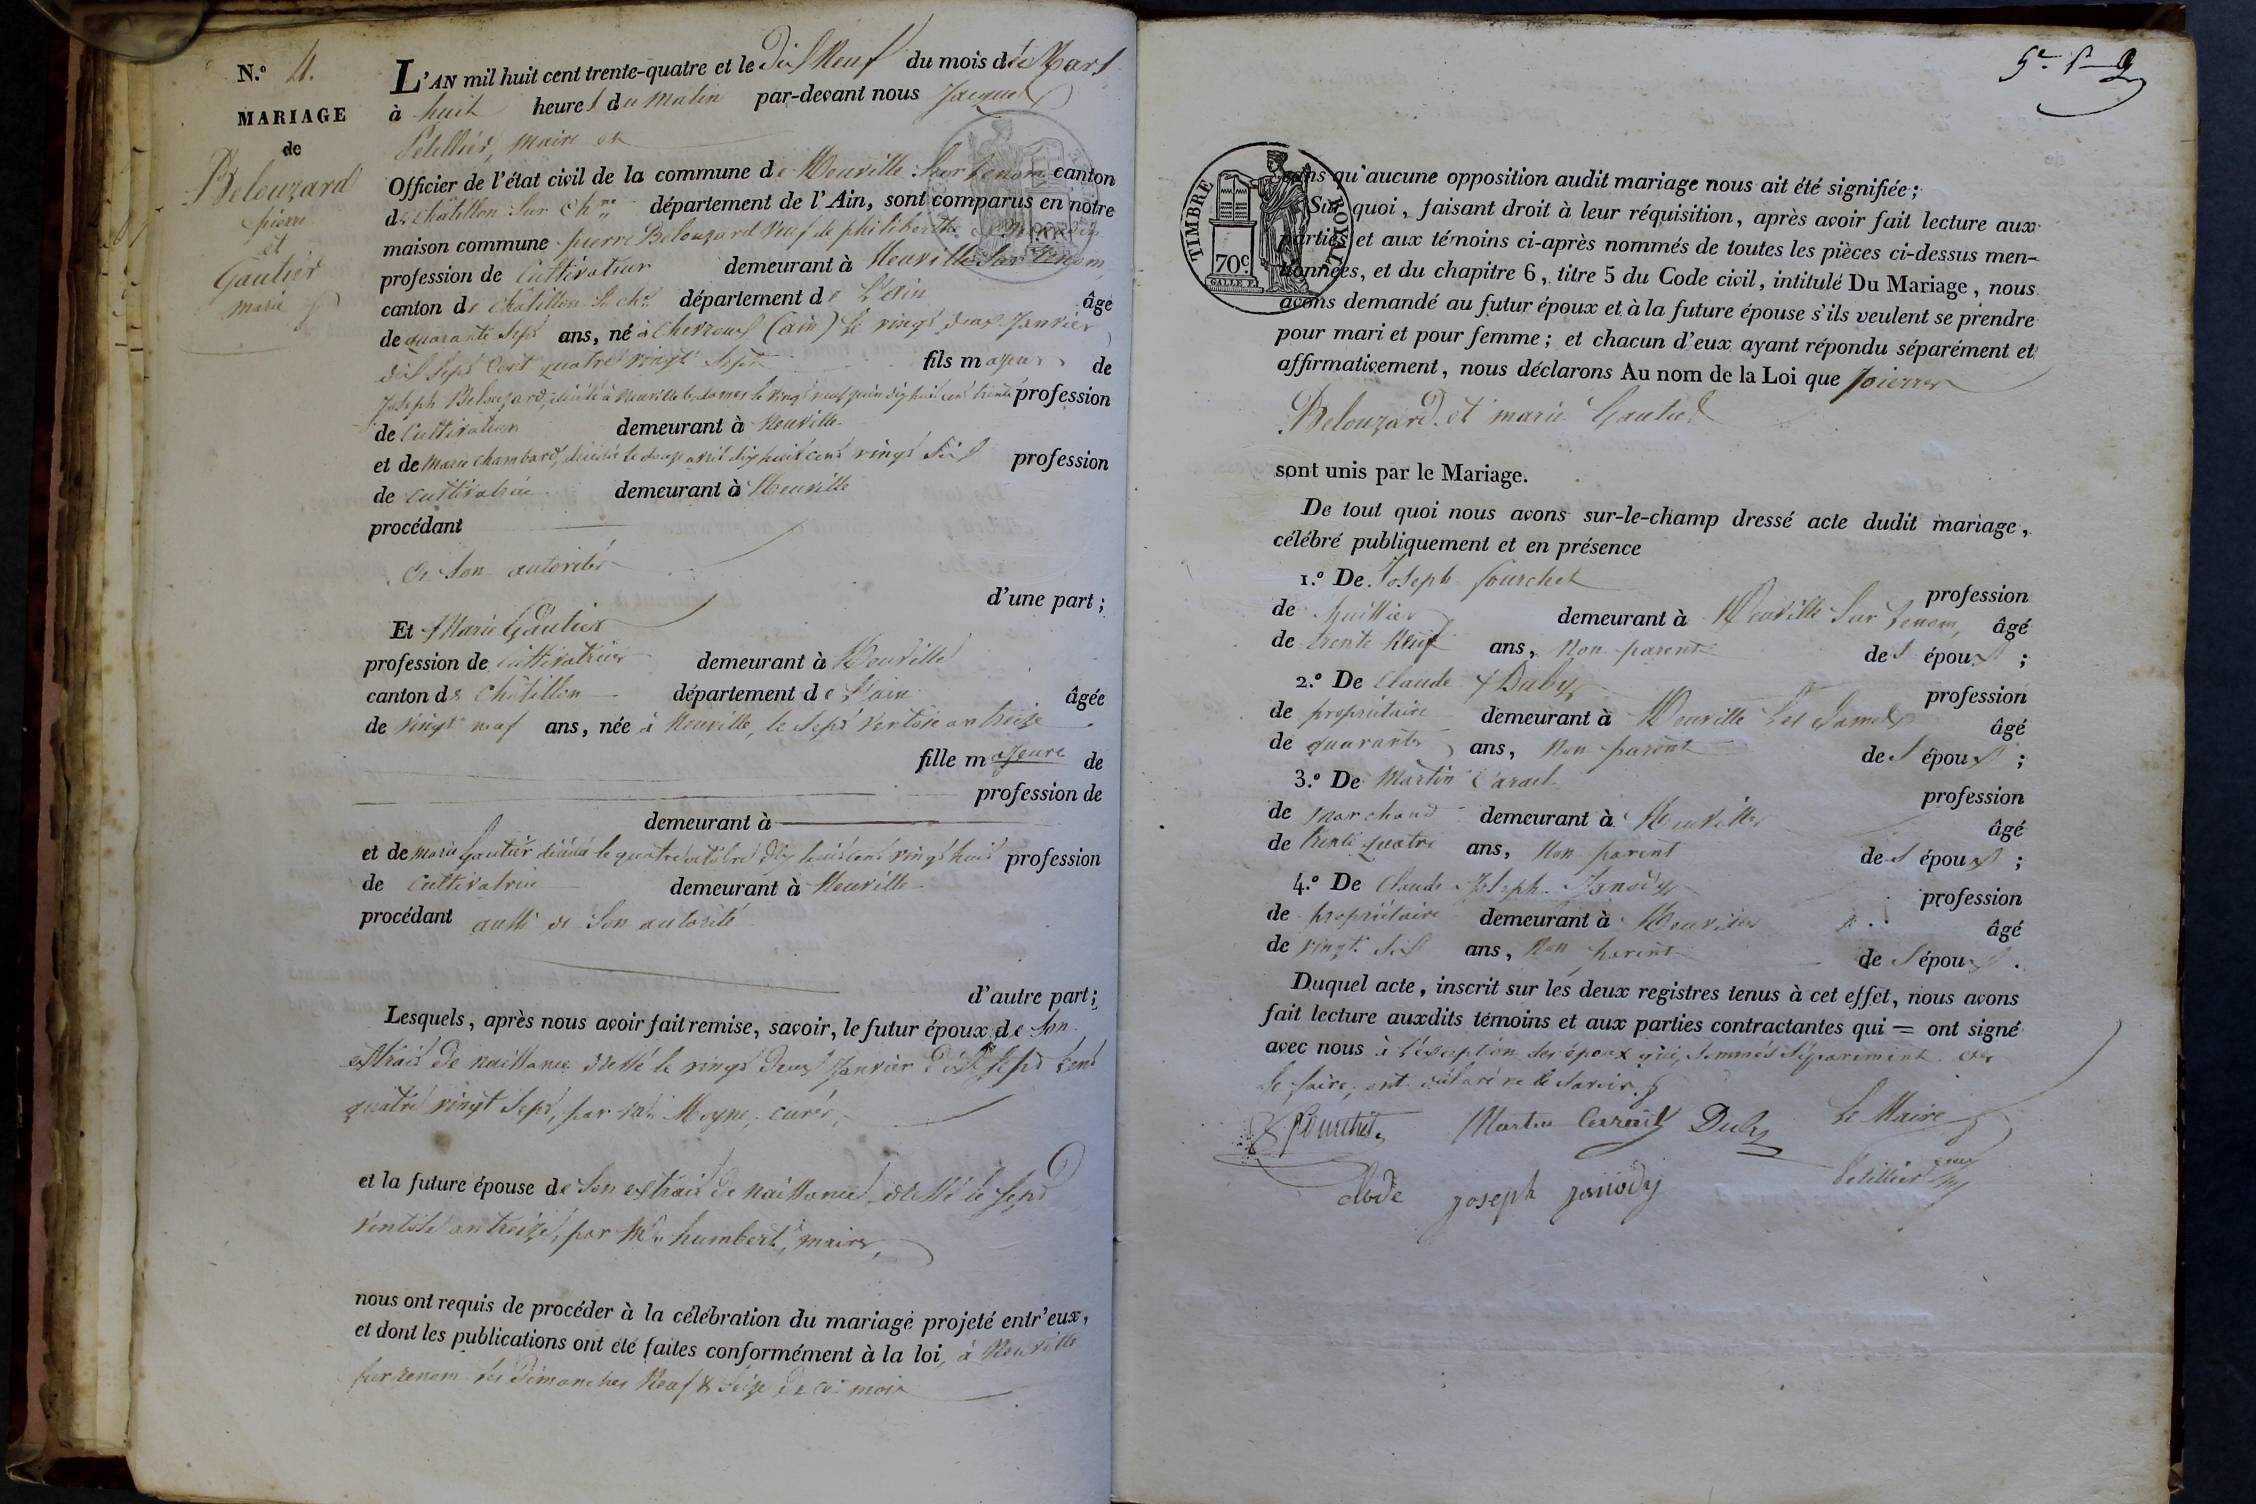 N.o 4.
MARIAGE
de
Belouzard
pierre
et
Gautier
marie
L'AN mil huit cent trente-quatre et le Dix Neuf du mois de Mars
à huit heures du Matin par-devant nous Jacques
Petellier, maire et
Officier de l'état civil de la commune de Neuville Sur renom canton
de Châtillon Sur Ch.ne département de l'Ain, sont comparus en notre
maison commune pierre Belouzard Veuf de philiberthe
profession de Cultivateur demeurant à Neuville Sur renom
canton de Châtillon S. ch.ne département de L'Ain âgé
de quarante Sept ans, né à Chevroux (ain) le vingt deux Janvier
dix Sept Cent quatre vingt Sept fils majeur de
Joseph Belouzard, décédé à Neuville les dames le vingt neuf juin dix huit cent trente profession
de Cultivateur demeurant à Neuville
et de Marie Chambard, décédée le douze avril dix huit cent vingt Six profession
de cultivatrice demeurant à Neuville
procédant
de Son autorité
d'une part ;
Et Marie Gautier
profession de Cultivatrice demeurant à Neuville
canton de Châtillon département de L'ain âgée
de vingt neuf ans, née à Neuville, le Sept Ventose an treize
fille majeure de
profession de
demeurant à
et de Marie Gautier décédée le quatre octobre dix huit cent vingt huit profession
de Cultivatrice demeurant à Neuville
procédant aussi de Son autorité
d'autre part ;
Lesquels, après nous avoir fait remise, savoir, le futur époux de Son
extrait de naissance dressé le vingt deux Janvier dix Sept Cent
quatre vingt Sept, par Mr. Moyne, curé,
et la future épouse de Son extrait de naissance, dressé le Sept
ventose an treize, par Mr. humbert, maire,
nous ont requis de procéder à la célébration du mariage projeté entr'eux,
et dont les publications ont été faites conformément à la loi, à Neuville
Sur renom les Dimanches Neuf & Seize de ce mois
TIMBRE ROYAL
70c.
GALLE F.
sans qu'aucune opposition audit mariage nous ait été signifiée ;
Sur quoi, faisant droit à leur réquisition, après avoir fait lecture aux
parties et aux témoins ci-après nommés de toutes les pièces ci-dessus men-
tionnées, et du chapitre 6, titre 5 du Code civil, intitulé Du Mariage, nous
avons demandé au futur époux et à la future épouse s'ils veulent se prendre
pour mari et pour femme ; et chacun d'eux ayant répondu séparément et
affirmativement, nous déclarons Au nom de la Loi que pierre
Belouzard et marie Gautier
sont unis par le Mariage.
De tout quoi nous avons sur-le-champ dressé acte dudit mariage,
célébré publiquement et en présence
1.o De Joseph fourchet profession
de huissier demeurant à Neuville Sur renom, âgé
de trente Neuf ans, Non parent des époux ;
2.o De Claude Duby profession
de propriétaire demeurant à Neuville Les Dames âgé
de quarante ans, Non parent des époux ;
3.o De Martin Carael profession
de Marchand demeurant à Neuville âgé
de trente quatre ans, Non parent des époux ;
4.o De Claude Joseph Janody profession
de propriétaire demeurant à Neuville âgé
de vingt Six ans, Non parent des époux .
Duquel acte, inscrit sur les deux registres tenus à cet effet, nous avons
fait lecture auxdits témoins et aux parties contractantes qui = ont signé
avec nous à l'exception des époux qui, Sommés Séparément de
le faire, ont déclaré ne le Savoir.
fourchet Martin Duby Le Maire
Clode joseph janody Petellier